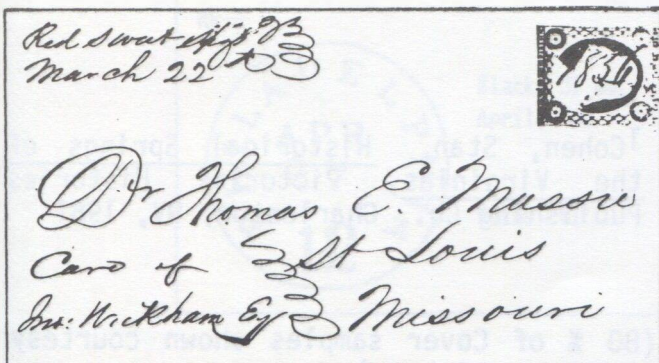 Red Sweet Spgs Va
March 22d
1856
Dr Thomas E Massie
St Louis
Care of
Jno. Wickham Esq Missouri
Cohen, Stan. Historical Springs of
the Virginias
Publishing Co., Charleston
(80 % of Cover samples shown courtesy